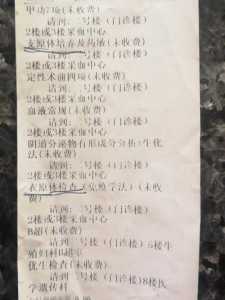 甲功7项(未收费)
请到:二号楼(门诊楼)
2楼或3楼采血中心
支原体培养及药敏(未收费)
请到:二号楼(门诊楼)
2楼或3楼采血中心
定性术前四项(未收费)
请到:二号楼(门诊楼)
2楼或3楼采血中心
血液常规(未收费)
请到:二号楼(门诊楼)
2楼或3楼采血中心
阴道分泌物有形成分分析+生化
法(未收费)
请到:二号楼(门诊楼)
2楼或3楼采血中心
衣原体检查(免疫学法)(未收
费)
请到:二号楼(门诊楼)
2楼或3楼采血中心
B超(未收费)
请到:二号楼(门诊楼)6楼生
殖妇科B超室
优生检查(未收费)
请到:二号楼(门诊楼)8楼医
学遗传科